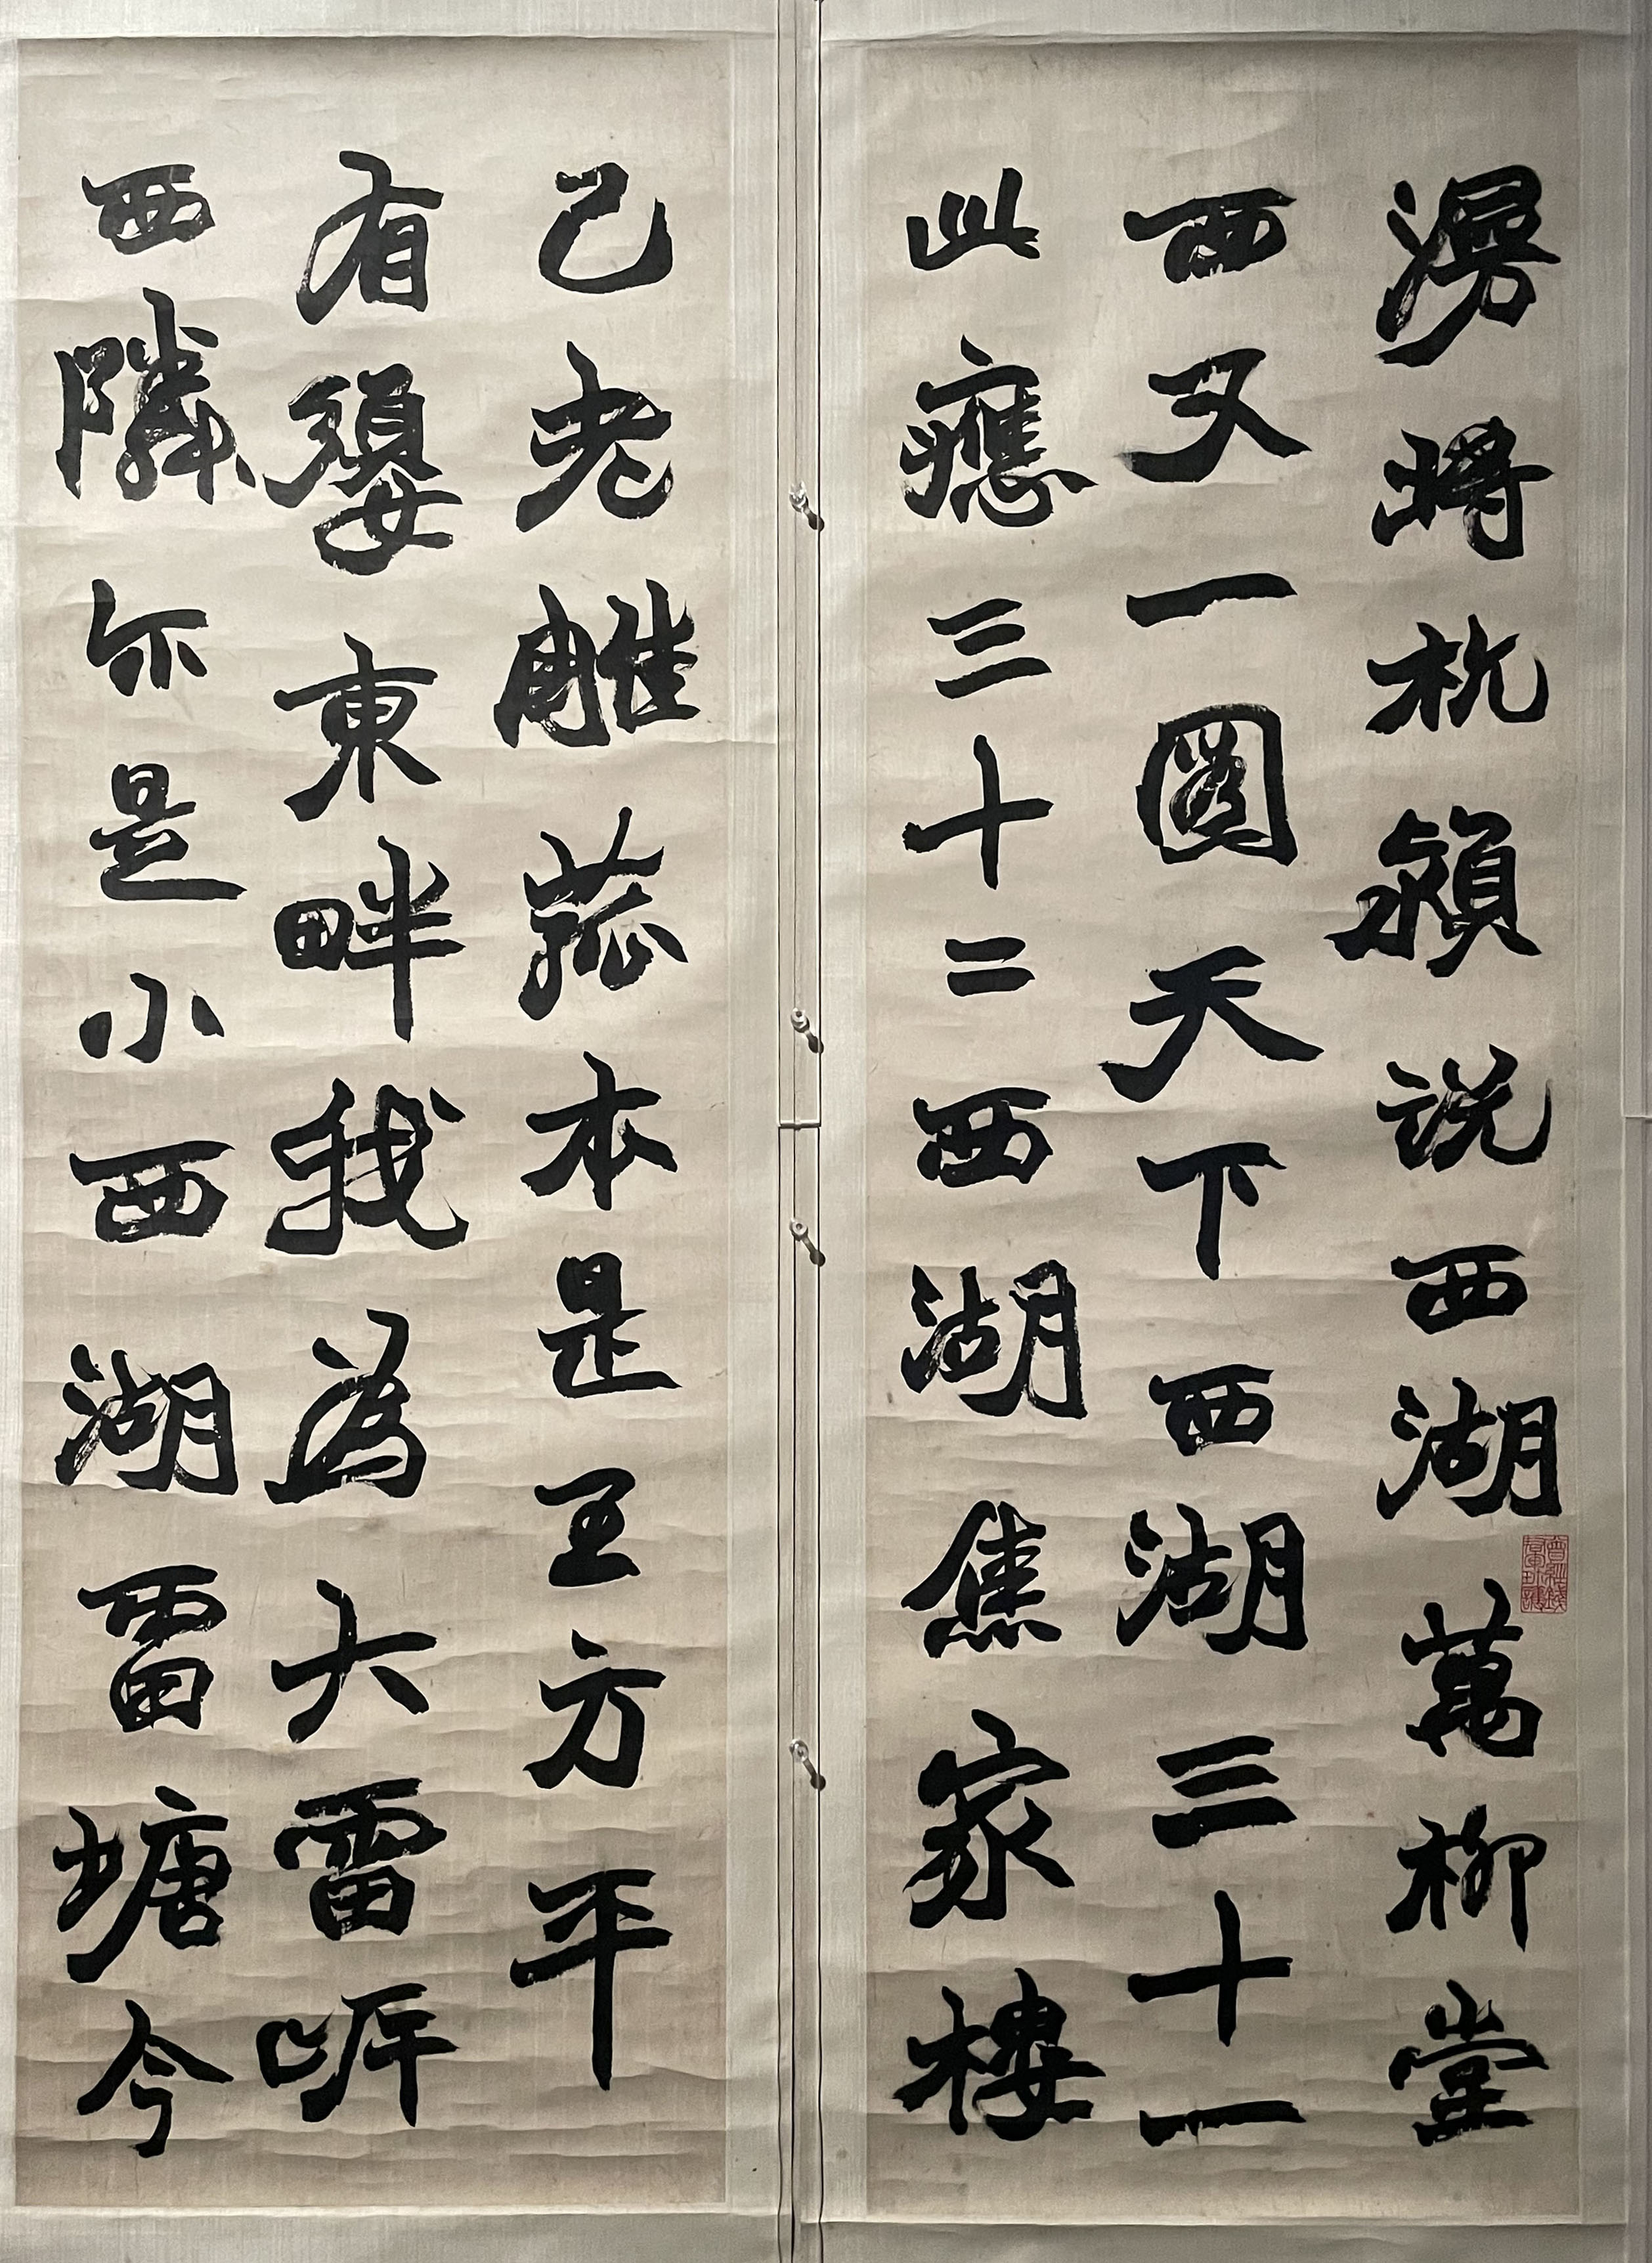 漫將杭潁說西湖萬柳堂
西又一圖天下西湖三十一
此應三十二西湖焦家樓
已老雕菰本是王方平
有嬃東畔我為大雷岸
西隣尒是小西湖雷塘今